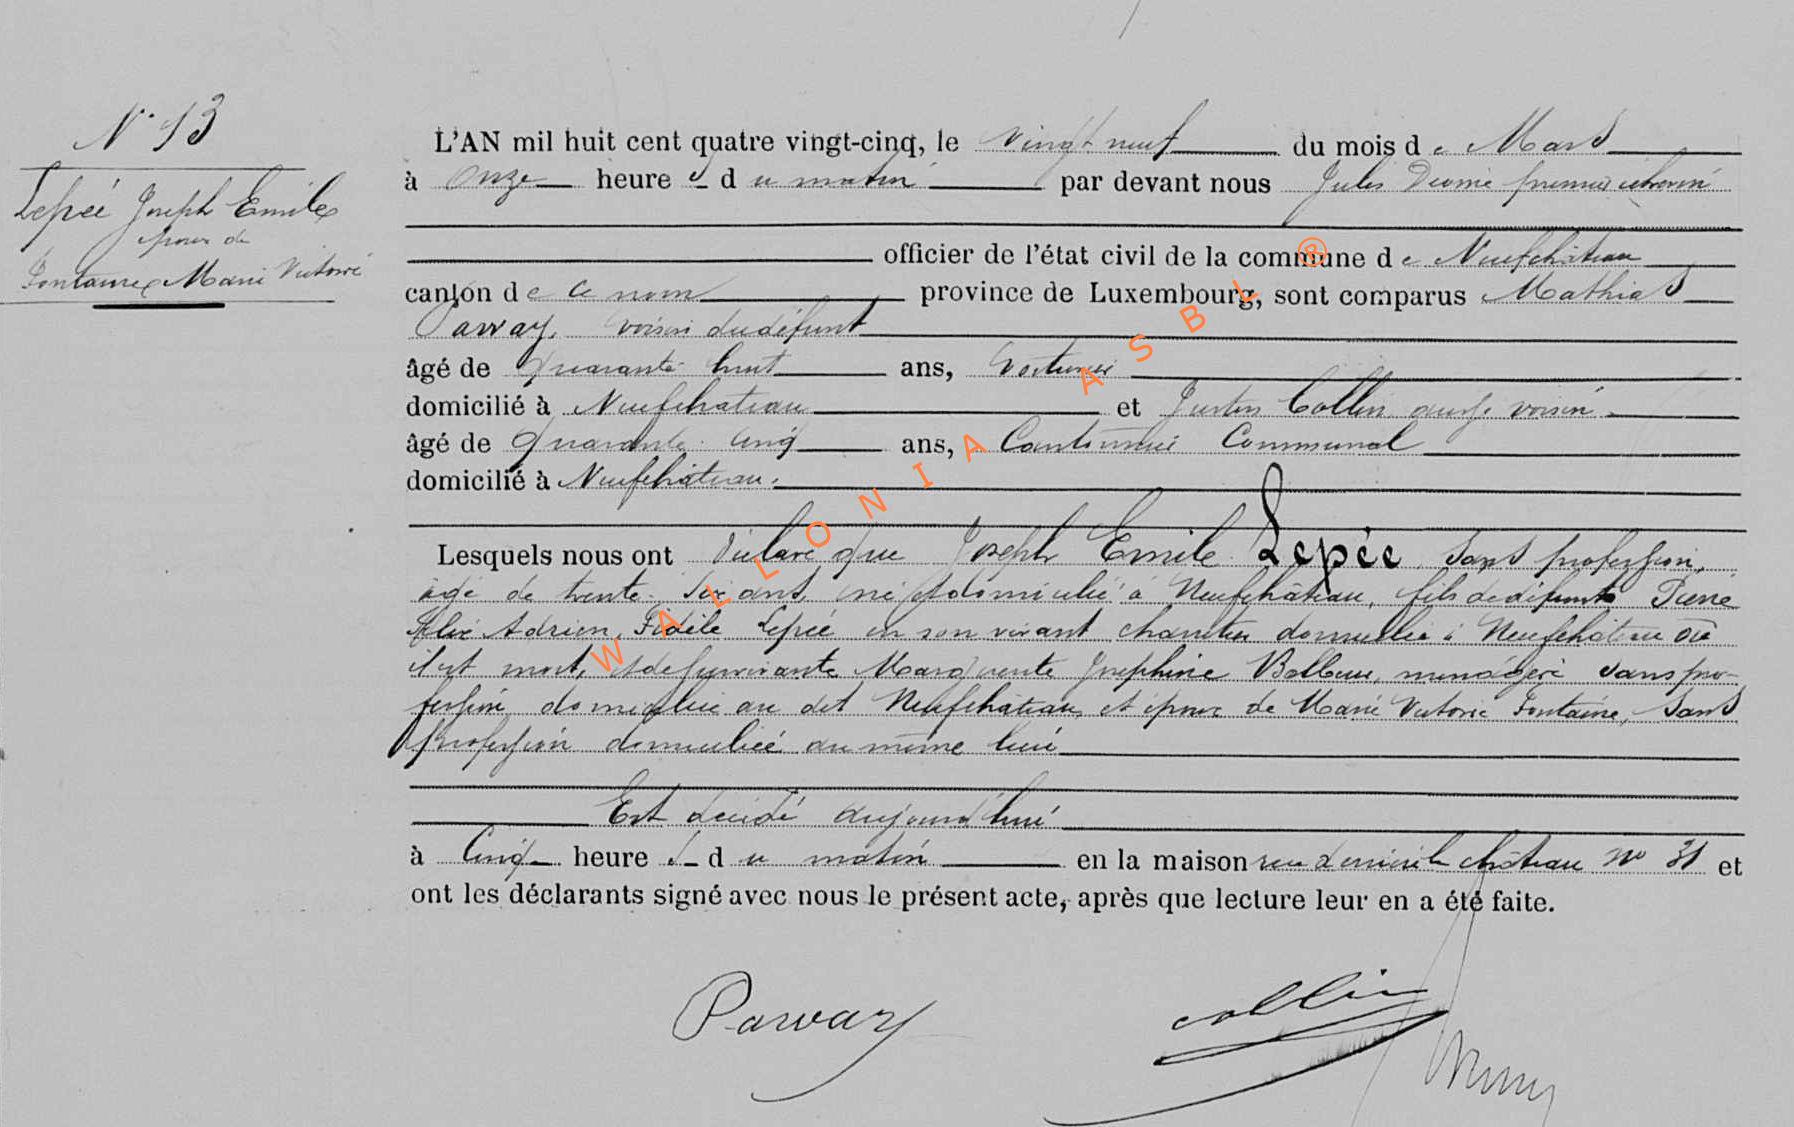 N° 13
Lepée Joseph Emile
époux de
Fontaine Marie Victoire
L'AN mil huit cent quatre vingt-cinq, le vingt neuf du mois de Mars
à onze heures du matin par devant nous Jules premier échevin
officier de l'état civil de la commune de Neufchâteau
canton de ce nom province de Luxembourg, sont comparus Mathias
Parvay, voisin du défunt
âgé de quarante huit ans, voiturier
domicilié à Neufchateau et Justin Collin aussi voisin
âgé de quarante cinq ans, Cantonnier Communal
domicilié à Neufchâteau.
Lesquels nous ont déclaré que Joseph Emile Lepée sans profession,
âgé de trente six ans, né et domicilié à Neufchâteau, fils de défunt Pierre
Adrien Fidèle Lepée en son vivant domicilié à Neufchâteau où
il est mort, et de survivante Marguerite Josephine ménagère sans pro-
fession domiciliée au dit Neufchâteau, et époux de Marie Victoire Fontaine, sans
profession domiciliée au même lieu
Est décédé aujourd'hui
à Cinq heures du matin en la maison rue derrière le château n° 31 et
ont les déclarants signé avec nous le présent acte, après que lecture leur en a été faite.
Parvay
Collin
WALLONIA ASBL ®